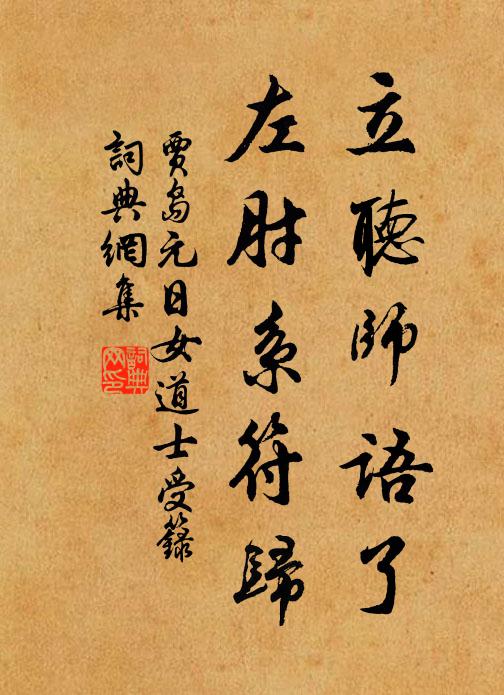 立聽師語了
左肘系符歸
賈島元日女道士受籙
詞典網集
詞典網印